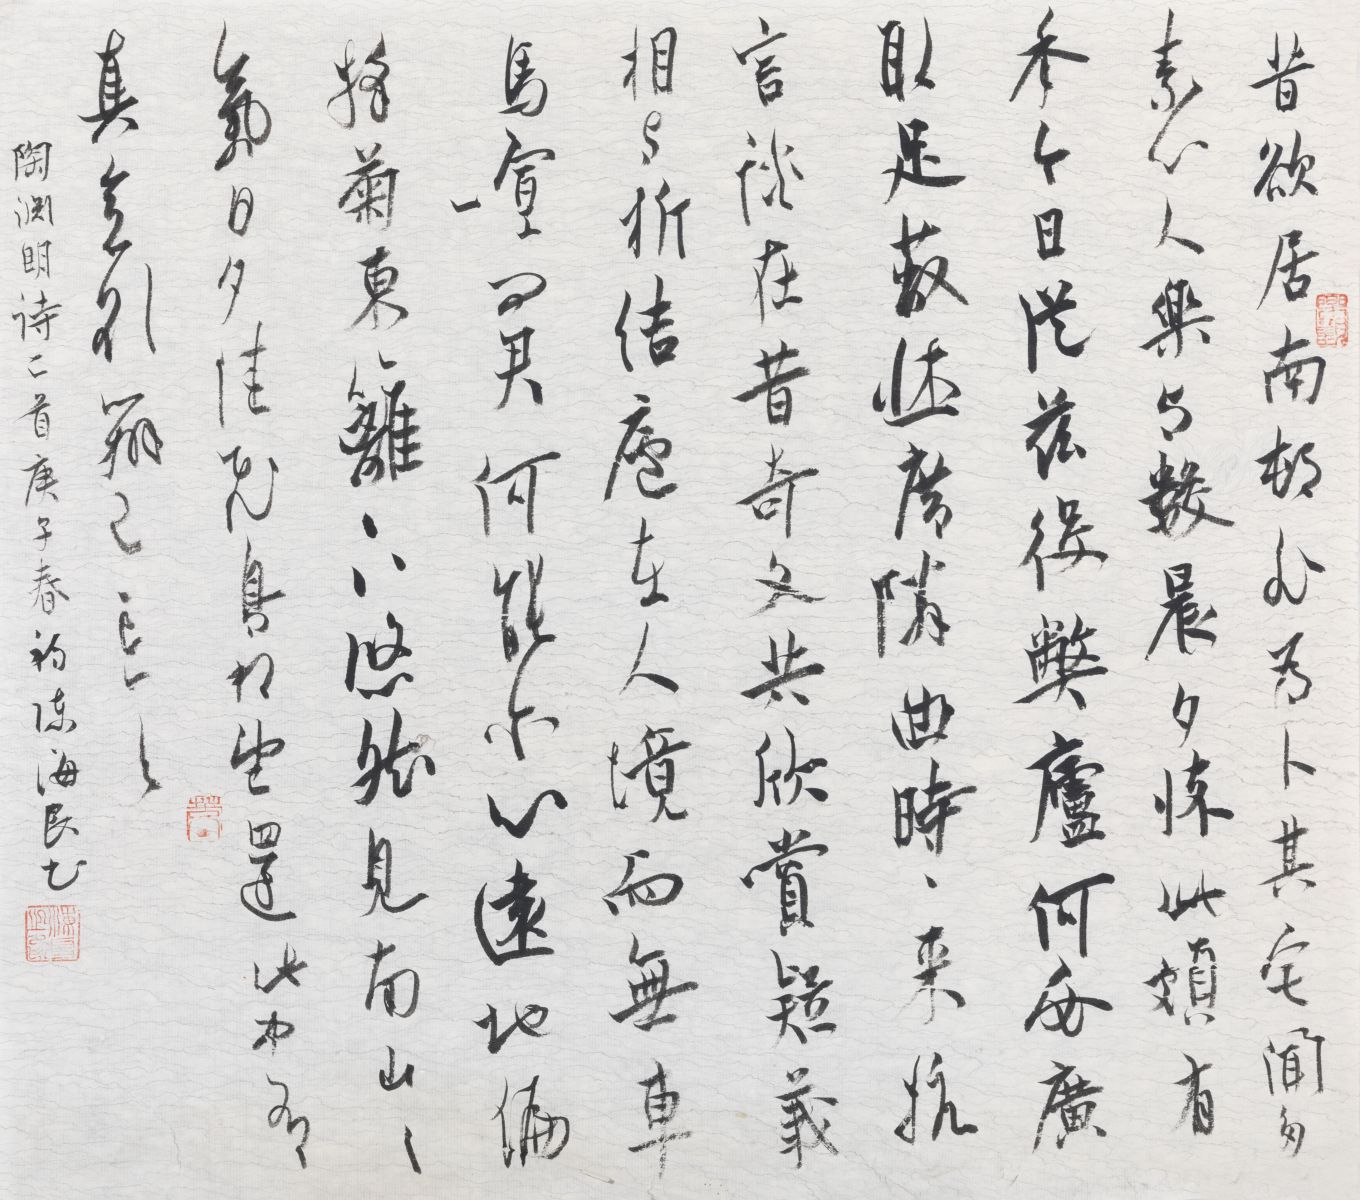 昔欲居南邨非為卜其宅聞多
素心人樂与數晨夕怀此頗有
年今日從茲役弊廬何必廣
取足蔽牀席隣曲時〻来抗
言談在昔奇文共欣賞疑義
相与析結廬在人境而無車
馬喧问君何能尔心遠地偏
採菊東籬下悠然見南山〻
氣日夕佳飛鳥相与還此中有
真意欲辨已忘言
陶渊明诗二首庚子春初陈海良书